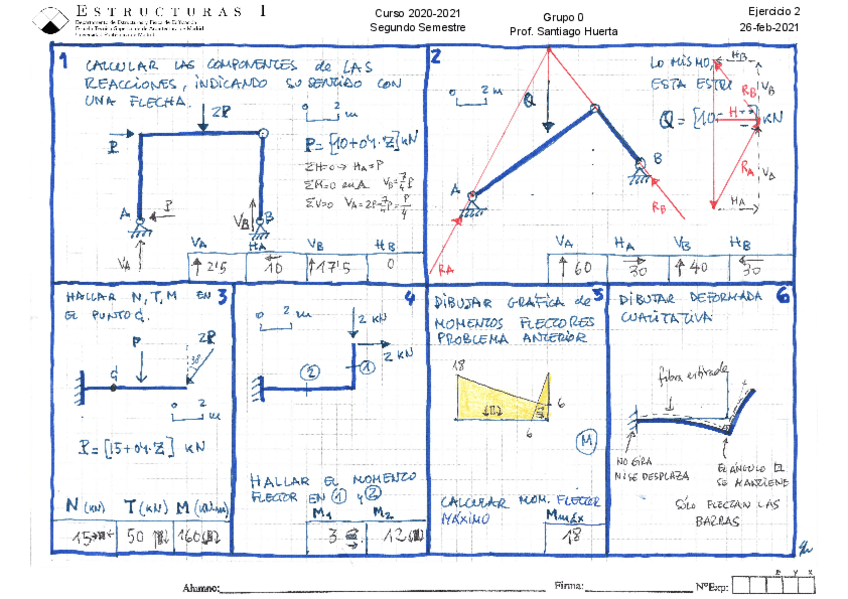 ESTRUCTURAS 1
Curso 2020-2021
Segundo Semestre
Grupo 0
Prof. Santiago Huerta
Ejercicio 2
26-feb-2021
1
CALCULAR LAS COMPONENTES de LAS
REACCIONES, INDICANDO SU SENTIDO CON
UNA FLECHA.
2P
0 2 m
P
P = [10+0'1·Z] kN
ΣH=0 → HA=P
ΣM=0 en A VB=7/4P
ΣV=0 VA=2P-7/4P=P/4
A
P
VB
B
VA
VA HA VB HB
↑ 2'5 ← 10 ↑ 17'5 0
2
LO MISMO,
ESTA ESTR
0 2 m
Q
Q = [10 kN
HB
VB
RB
H
RA
VA
HA
A
B
RB
RA
VA HA VB HB
↑ 60 → 30 ↑ 40 ← 30
3
HALLAR N, T, M EN
EL PUNTO G.
P
2P
30
G
0 2 m
P = [15+0'1·Z] kN
N (kN) T (kN) M (kN·m)
15 50 160
4
0 2 m
2 kN
2 kN
1
2
HALLAR EL MOMENTO
FLECTOR EN 1 y 2
M1 M2
3 12
5
DIBUJAR GRÁFICA de
MOMENTOS FLECTORES
PROBLEMA ANTERIOR
18
6
6
M
CALCULAR MOM. FLECTOR
MÁXIMO
Mmáx
18
6
DIBUJAR DEFORMADA
CUALITATIVA
fibra estirada
NO GIRA
NI SE DESPLAZA
EL ÁNGULO
SE MANTIENE
SÓLO FLECTAN LAS
BARRAS
Alumno:
Firma:
NºExp:
x y z